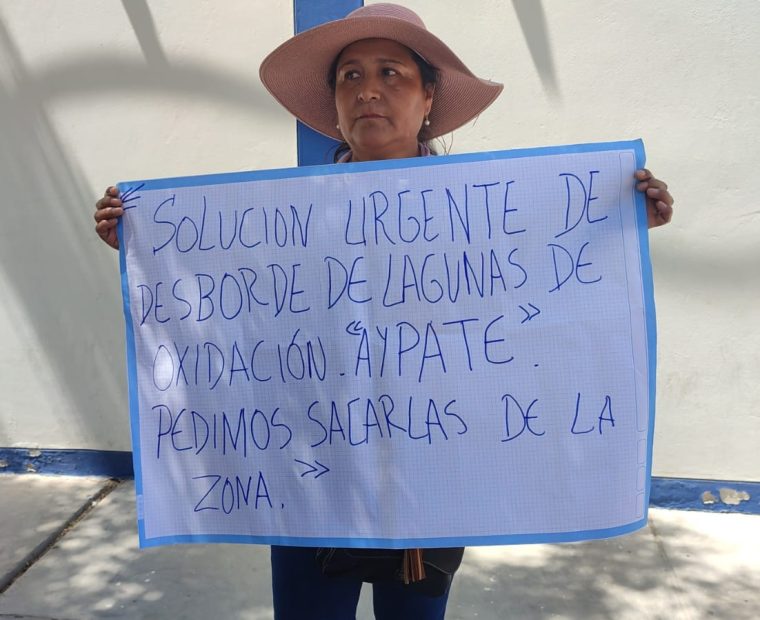 “SOLUCION URGENTE DE
DESBORDE DE LAGUNAS DE
OXIDACIÓN. “AYPATE”.
PEDIMOS SACARLAS DE LA
ZONA.”